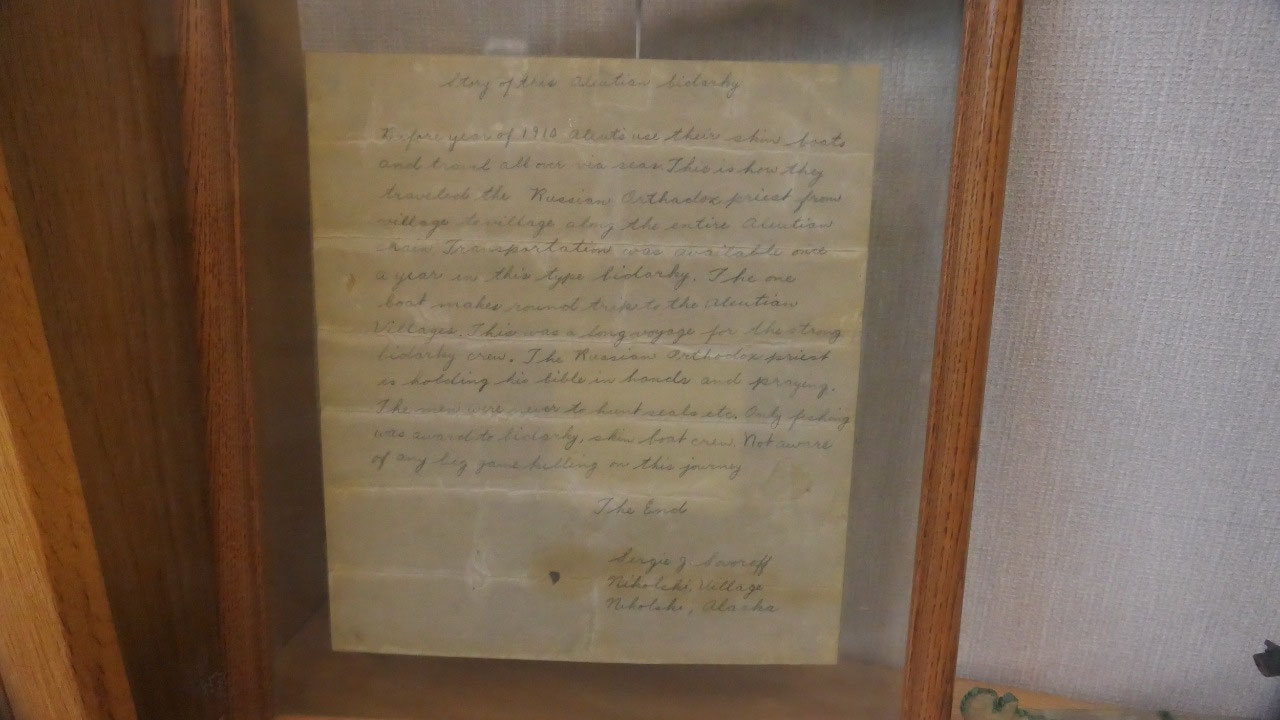 Story of this Aleutian bidarky
Before year of 1910 Aleuts use their skin boats
and travel all over via seas. This is how they
traveled the Russian Orthadox priest from
village to village along the entire Aleutian
chain Transportation was available once
a year in this type bidarky. The one
boat makes round trip to the Aleutian
Villages. This was a long voyage for the strong
bidarky crew. The Russian Orthodox priest
is holding his bible in hands and praying.
The men were never to hunt seals etc. Only fishing
was award to bidarky, skin boat crew. Not aware
of any big game killing on this journey
The End
Sergie J Savoreff
Nikolski, Village
Nikolski, Alaska